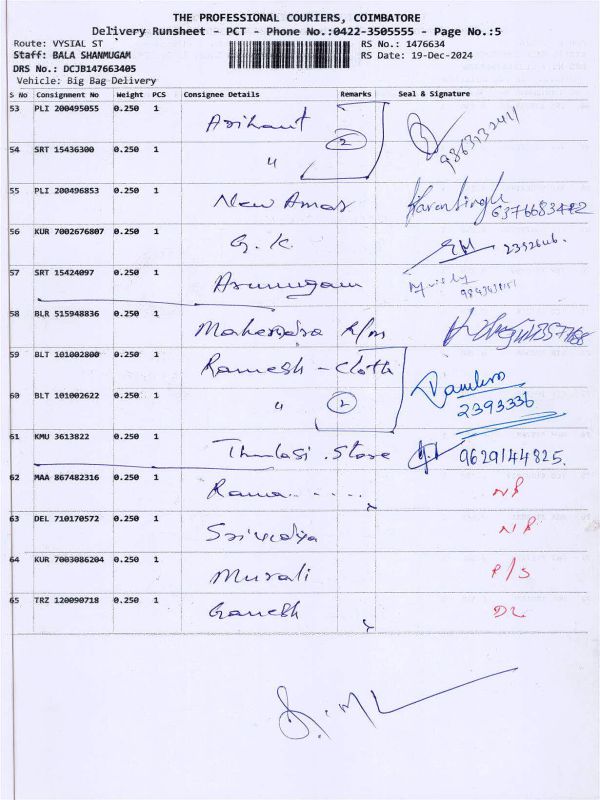 THE PROFESSIONAL COURIERS, COIMBATORE
Delivery Runsheet - PCT - Phone No.:0422-3505555 - Page No.:5
Route: VYSIAL ST
Staff: BALA SHANMUGAM
DRS No.: DCJB147663405
Vehicle: Big Bag Delivery
RS No.: 1476634
RS Date: 19-Dec-2024
S No Consignment No Weight PCS Consignee Details Remarks Seal & Signature
53 PLI 200495055 0.250 1 Arihant 2
54 SRT 15436300 0.250 1 "
55 PLI 200496853 0.250 1 New Amar
56 KUR 7002676807 0.250 1 G. K.
57 SRT 15424097 0.250 1 Arumugam
58 BLR 515948836 0.250 1 Mahendra R/m
59 BLT 101002800 0.250 1 Ramesh - Cloth
60 BLT 101002622 0.250 1 " 2 2393336
61 KMU 3613822 0.250 1 Thulasi . Store 9629144825.
62 MAA 867482316 0.250 1 Rama......
63 DEL 710170572 0.250 1 Srividya
64 KUR 7003086204 0.250 1 Murali P/S
65 TRZ 120090718 0.250 1 Ganesh DL